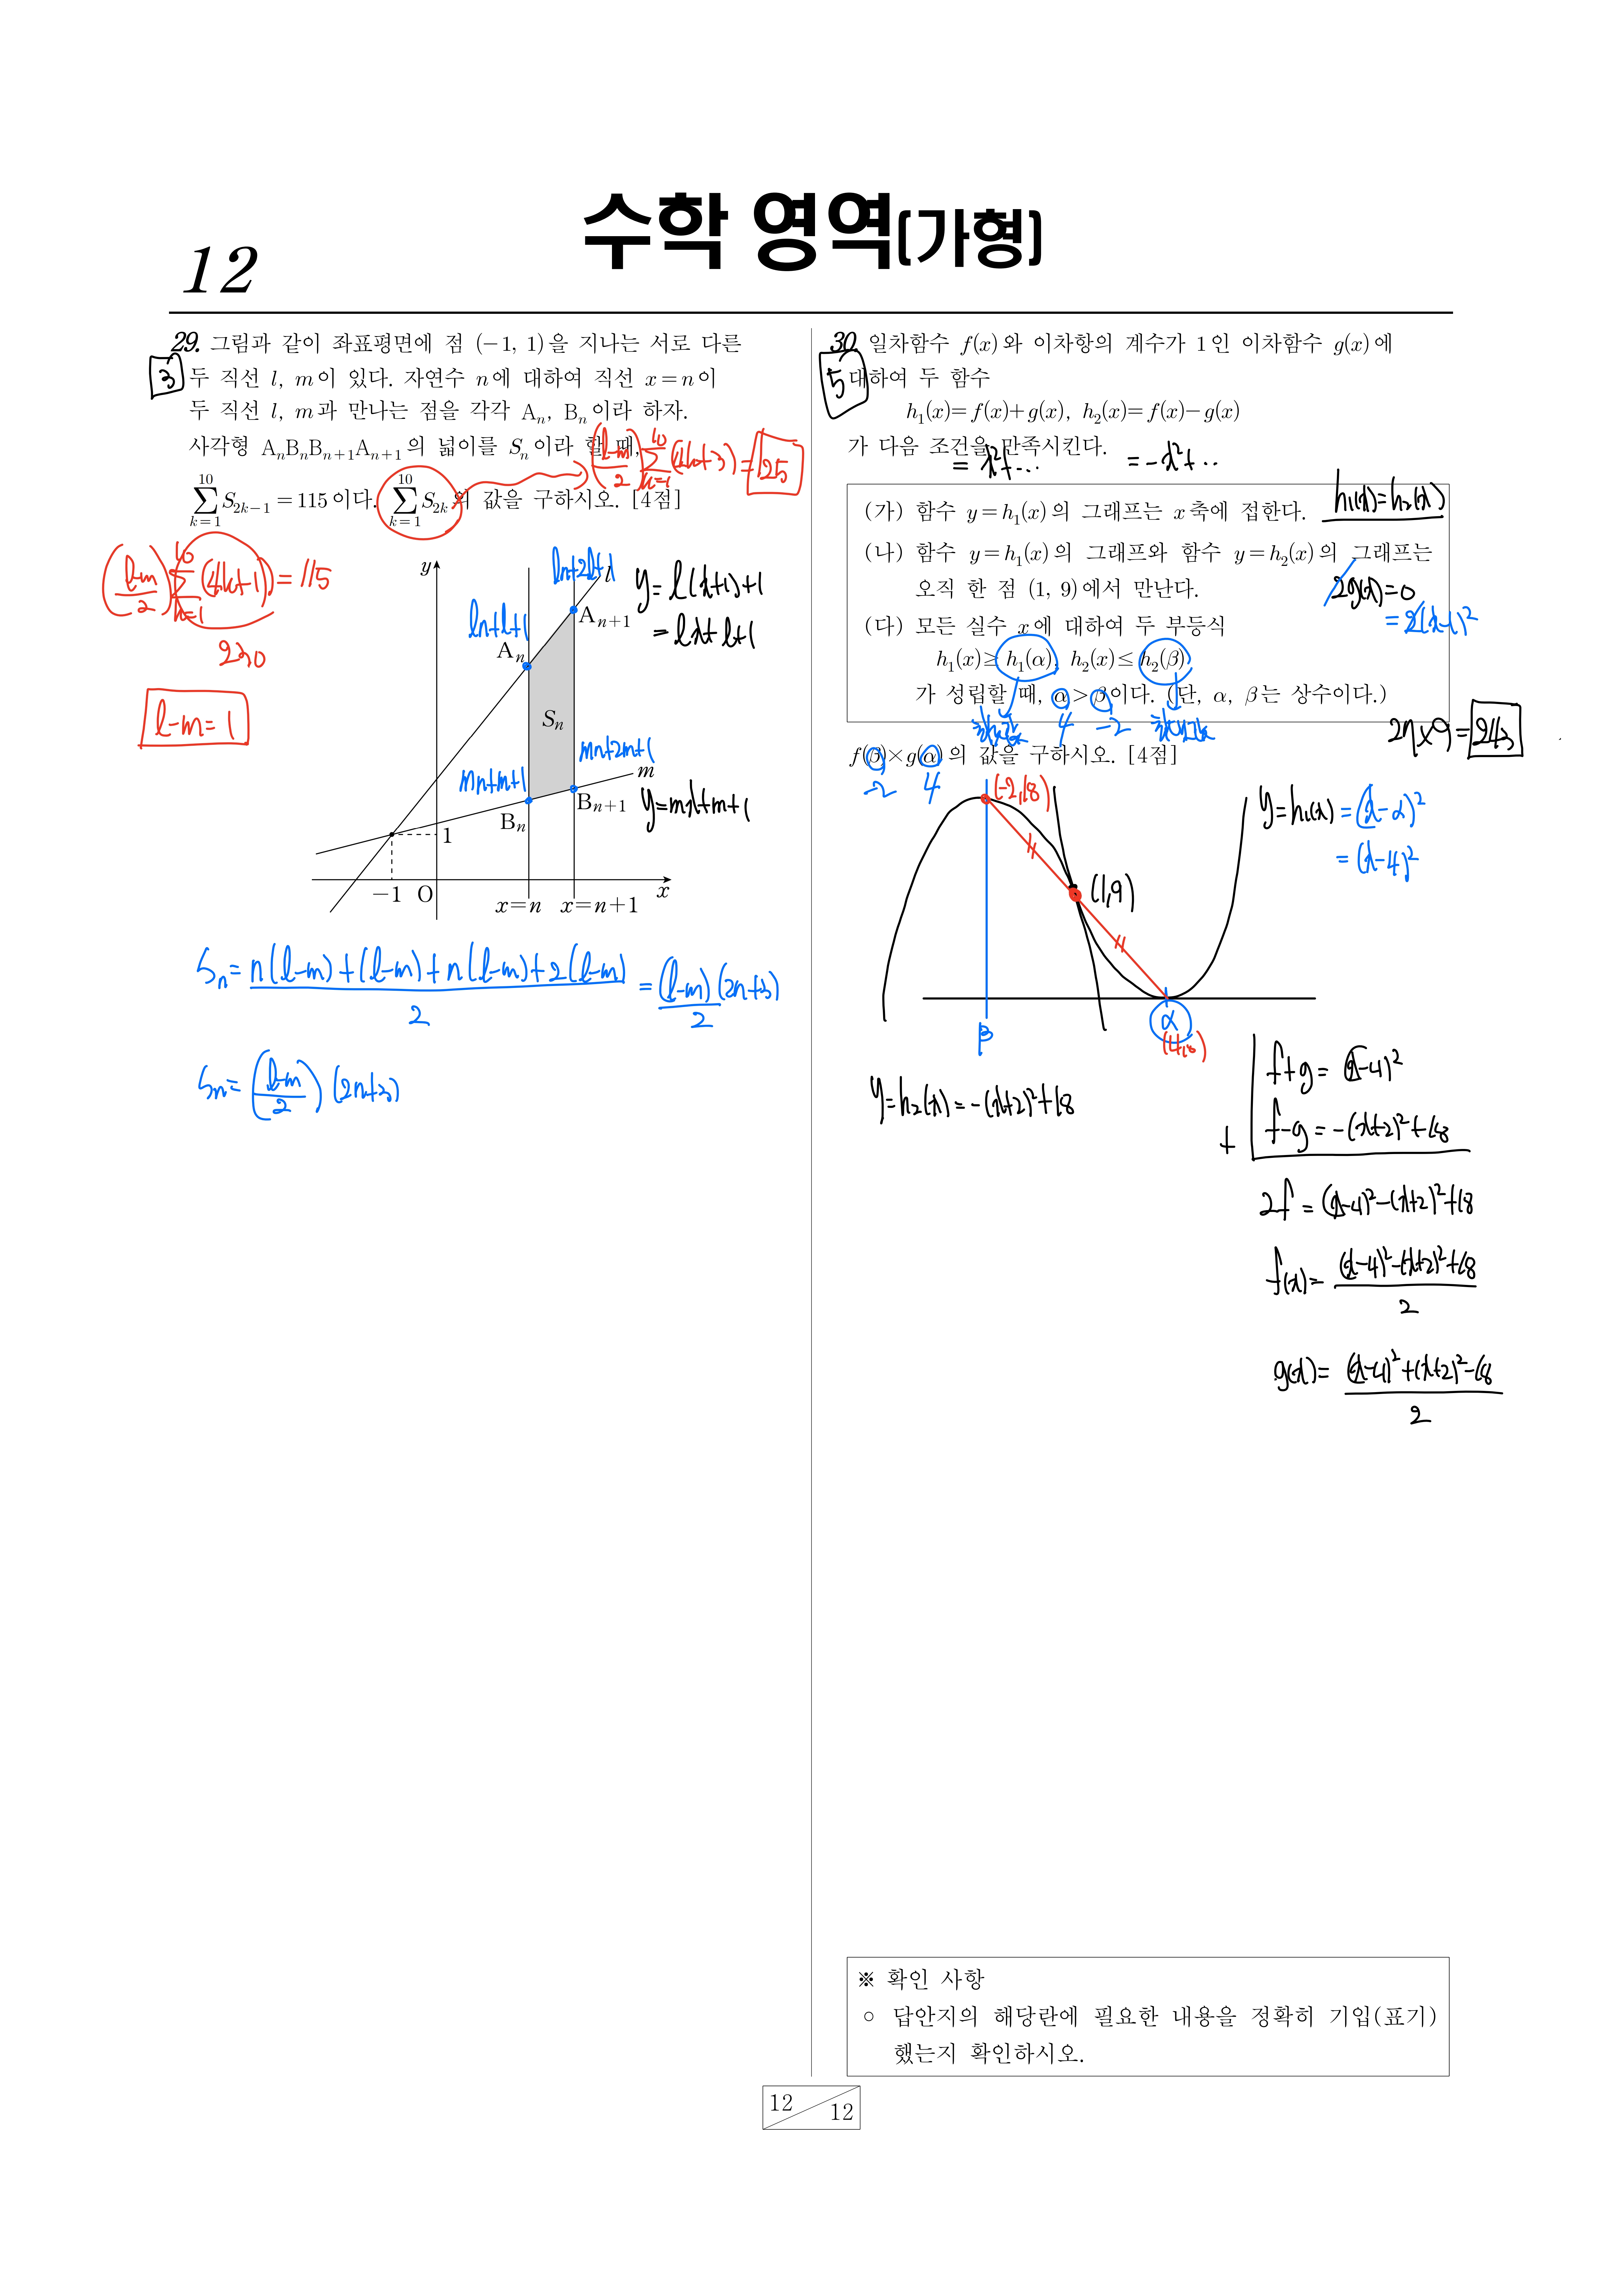 수학 영역(가형)
12
29. 그림과 같이 좌표평면에 점 (−1, 1)을 지나는 서로 다른
3
두 직선 l, m이 있다. 자연수 n에 대하여 직선 x=n이
두 직선 l, m과 만나는 점을 각각 Aₙ, Bₙ이라 하자.
사각형 AₙBₙBₙ₊₁Aₙ₊₁의 넓이를 Sₙ이라 할 때,
(l-m)/2 Σ_{k=1}^{10} (4k+3) = 125
Σ_{k=1}^{10} S₂ₖ₋₁ = 115이다. Σ_{k=1}^{10} S₂ₖ의 값을 구하시오. [4점]
((l-m)/2) Σ_{k=1}^{10} (4k+1) = 115
230
l-m=1
y
ln+2l+1
l
y=l(x+1)+1
=lx+l+1
ln+l+1
Aₙ₊₁
Aₙ
Sₙ
mn+2m+1
mn+m+1
m
Bₙ₊₁
y=mx+m+1
Bₙ
1
−1
O
x=n
x=n+1
x
Sₙ = (n(l-m)+(l-m)+n(l-m)+2(l-m))/2 = (l-m)/2 (2n+3)
Sₙ = ((l-m)/2) (2n+3)
30. 일차함수 f(x)와 이차항의 계수가 1인 이차함수 g(x)에
5
대하여 두 함수
h₁(x)=f(x)+g(x), h₂(x)=f(x)−g(x)
가 다음 조건을 만족시킨다.
= x²+··· = -x²+··
h₁(x)=h₂(x)
(가) 함수 y=h₁(x)의 그래프는 x축에 접한다.
(나) 함수 y=h₁(x)의 그래프와 함수 y=h₂(x)의 그래프는
오직 한 점 (1, 9)에서 만난다.
2g(x)=0
=2(x-1)²
(다) 모든 실수 x에 대하여 두 부등식
h₁(x)≥h₁(α), h₂(x)≤h₂(β)
가 성립할 때, α>β이다. (단, α, β는 상수이다.)
4 -2
27×9=243
f(β)×g(α)의 값을 구하시오. [4점]
-2 4
(-2,18)
y=h₁(x)=(x-α)²
=(x-4)²
(1,9)
β
α
y=h₂(x)=-(x+2)²+18
f+g=(x-4)²
+ f-g=-(x+2)²+18
2f=(x-4)²-(x+2)²+18
f(x)=((x-4)²-(x+2)²+18)/2
g(x)=((x-4)²+(x+2)²-18)/2
※ 확인 사항
○ 답안지의 해당란에 필요한 내용을 정확히 기입(표기)
했는지 확인하시오.
12
12